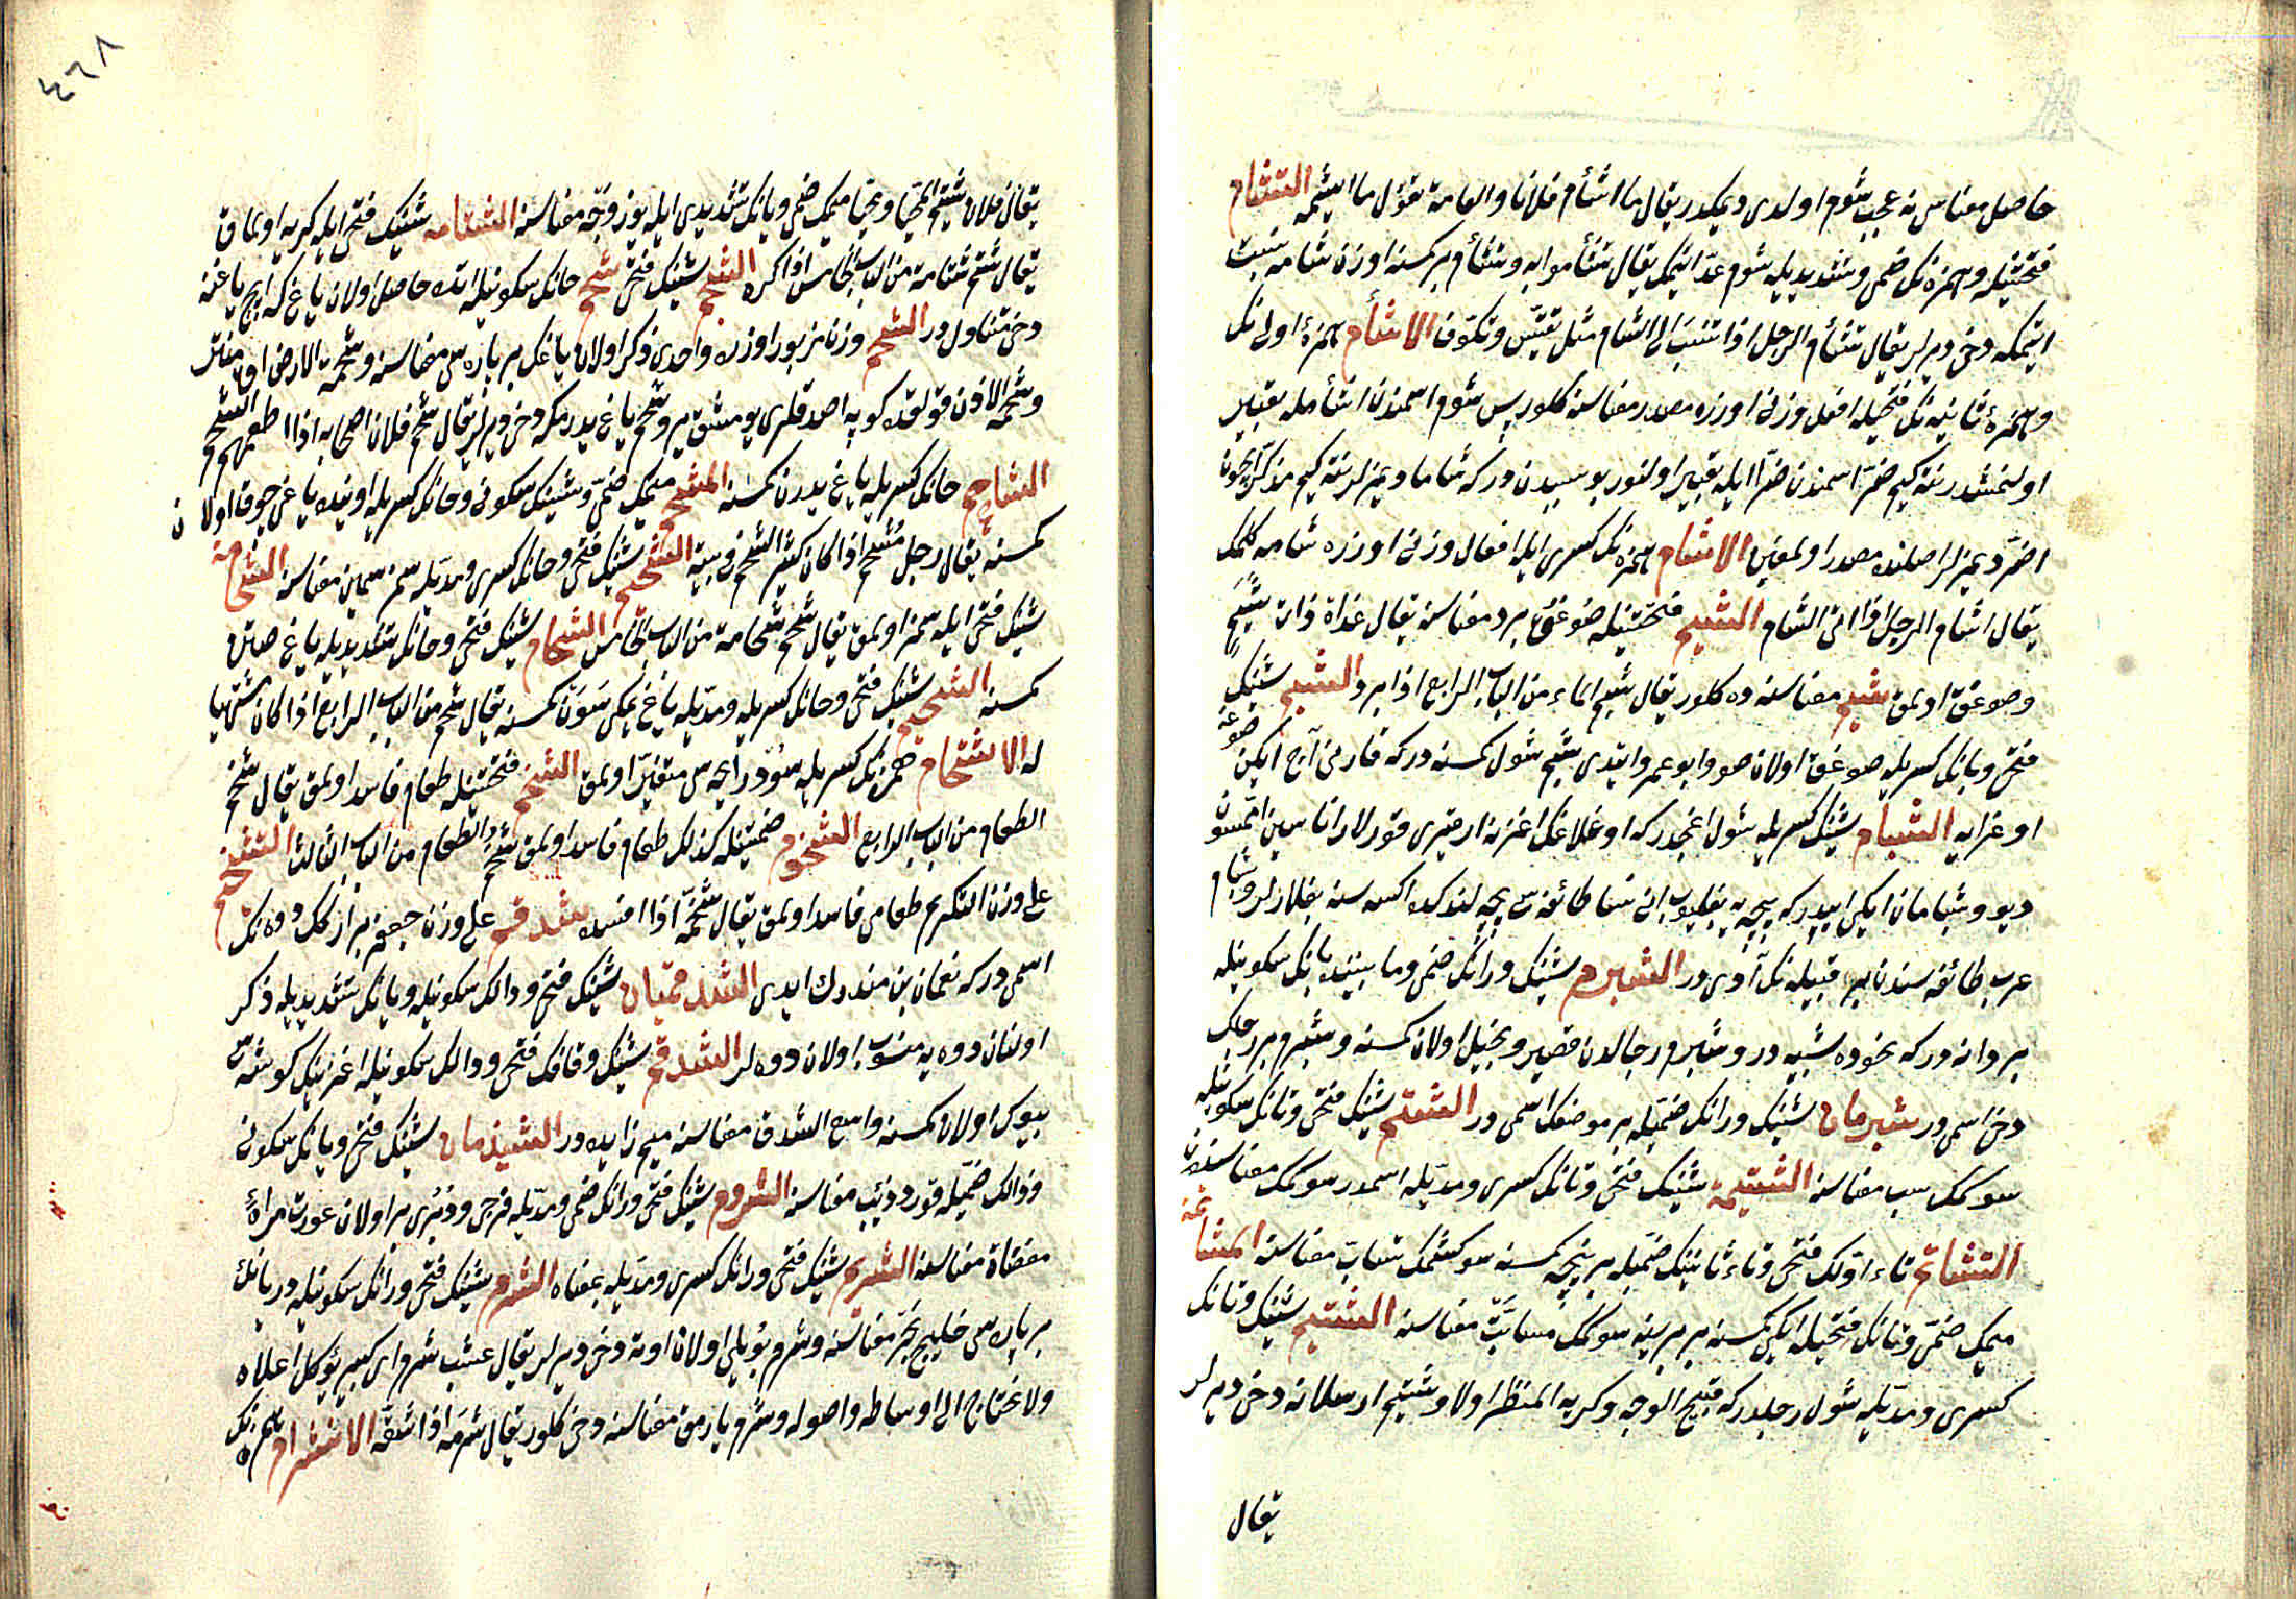 حاصل معناسی نه عجب شوم اولدی دیمکدر یقال ما اشأم فلانا والعامة تقول ما ایشمه التشأم
فتحتیله وهمزه نک ضمی وتشدیدیله شوم عد ایتمک یقال تشأموا به وتشأم بر کمسنه اوزن شامه نسبت
ایتمکه دخی دیرلر یقال تشأم الرجل اذا انتسب الی الشام مثل تقیس وتکوف الاشأم همزۀ اولی نک
وهمزۀ ثانیه نک فتحیله افعل وزنی اوزره مصدر معناسنه کلور پس شوم اسمندن اشأمله تعبیر
اولنمشدر نته کیم ضر اسمندن ضرا ایله تعبیر اولنور بو سببدن درکه شاما دیمزلر نته کیم مذکر ایچون
اضر دیمزلر اصلنده مصدر اولمغین الاشام همزه نک کسری ایله افعال وزنی اوزره شامه کلمک
یقال اشام الرجل اذا اتی الشام الشبم فتحتیله صوغق برد معناسنه یقال غداة ذات شبم
وصوغق اولمق شبم معناسنه ده کلور یقال شبم الماء من الباب الرابع اذا برد الشبم شینک
فتحی وبانک کسریله صوغق اولان صو وابو عمرو ایتدی شبم شول کمسنه درکه قارنی آج ایکن صوغه
اوغرایه الشبام شینک کسریله شول اغجدرکه اوغلاغک اغزنه ارقری قورلر اناسین اممسون
دیو وشبامان ایکی ایپدرکه پیچه یه بغلیوب انی نسا طائفه سی پیچه لندکده اکسه سنه بغلارلر وشبام
عرب طائفه سندن بر قبیله نک آدی در الشبرم شینک ورانک ضمی وما بیننده بانک سکونیله
بر دانه درکه نخوده شبیه در وشبرم رجالدن قصیر وبخیل اولان کمسنه وشبرم بر رجلک
دخی اسمی در شبرمان شینک ورانک ضمیله بر موضعک اسمی در الشتم شینک فتحی وتانک سکونیله
سوکمک سب معناسنه الشتیمة شینک فتحی وتانک کسری ومدیله اسمدر سوکمک معناسندن
التشاتم تاء اولک فتحی وتاء ثانینک ضمیله بر نیچه کمسنه سوکشمک تساب معناسنه المشاتمة
میمک ضمی وتانک فتحیله ایکی کمسنه بر برینه سوکمک مسابت معناسنه الشتیم شینک وتانک
کسری ومدیله شول رجلدرکه قبیح الوجه وکریه المنظر اولا وشتیم ارسلانه دخی دیرلر
یقال
٤٦٨
یقال فلان شتیم المحیا ومحیا میمک ضمی ویانک تشدیدی ایله یوز وجه معناسنه الشتامه شینک فتحی ایله کریه اولماق
یقال شتم شتامة من الباب الخامس اذا کره الشحم شینک فتحی شحم حانک سکونیله اتده حاصل اولان یاغ که ایچ یاغنه
دخی متناول در الشحم وزن مزبور اوزره واحدی ذکر اولان یاغک بر پاره سی معناسنه وشحمة الارض
وشحمة الاذن قولقده کوپه اصدقلری یومشق یر وشحم یاغ یدرمکه دخی دیرلر یقال شحم فلان اصحابه اذا اطعمهم الشحم
الشاحم حانک کسریله یاغ یدرن کمسنه المشحم میمک ضمی وشینک سکونی وحانک کسریله اونده یاغی چوق اولان
کمسنه یقال رجل مشحم اذا کان کثیر الشحم فی بیته الشحیم شینک فتحی وحانک کسری ومدیله سمز سمین معناسنه الشحامة
شینک فتحی ایله سمز اولمق یقال شحم شحامة من الباب الخامس الشحام شینک فتحی وحانک تشدیدیله یاغ صاتن
کمسنه الشحیم شینک فتحی وحانک کسریله ومدیله یاغ یمکی سون کمسنه یقال شحم من الباب الرابع اذا کان مشتهیا
له الاشخام همزه نک کسریله سود رایحه سی متغیر اولمق الشخم فتحتیله طعام فاسد اولمق یقال شخم
الطعام من الباب الرابع الشخوم ضمتیله کذلک طعام فاسد اولمق شخم الطعام من الباب الثالث التشخیم
علی وزن التکریم طعامی فاسد اولمق یقال شخمه اذا افسده شدقم علی وزن جعفر بر ارکک دوه نک
اسمی درکه نعمان بن منذرک ایدی الشدقمیات شینک فتحی ودالک سکونیله ویانک تشدیدیله ذکر
اولنان دوه یه منسوب اولان دوه لر الشدقم شینک وقافک فتحی ودالک سکونیله اغزینک کوشه سی
بیوک اولان کمسنه واسع الشدق معناسنه میم زایده در الشیذمان شینک فتحی ویانک سکونی
وذالک ضمیله قورد ذئب معناسنه الشروم شینک فتحی ورانک ضمی ومدیله فرجی ودبری بر اولان عورت مراة
مفضاة معناسنه الشریم شینک فتحی ورانک کسری ومدیله بمعناه الشرم شینک فتحی ورانک سکونیله دریانک
بر پاره سی خلیج بحر معناسنه وشرم بویلی اولان اوته دخی دیرلر یقال عشب شرم ای کبیر یؤکل اعلاه
ولا یحتاج الی اوساطه واصوله وشرم یارمق معناسنه دخی کلور یقال شرمه اذا شقه الانشرام همزه نک